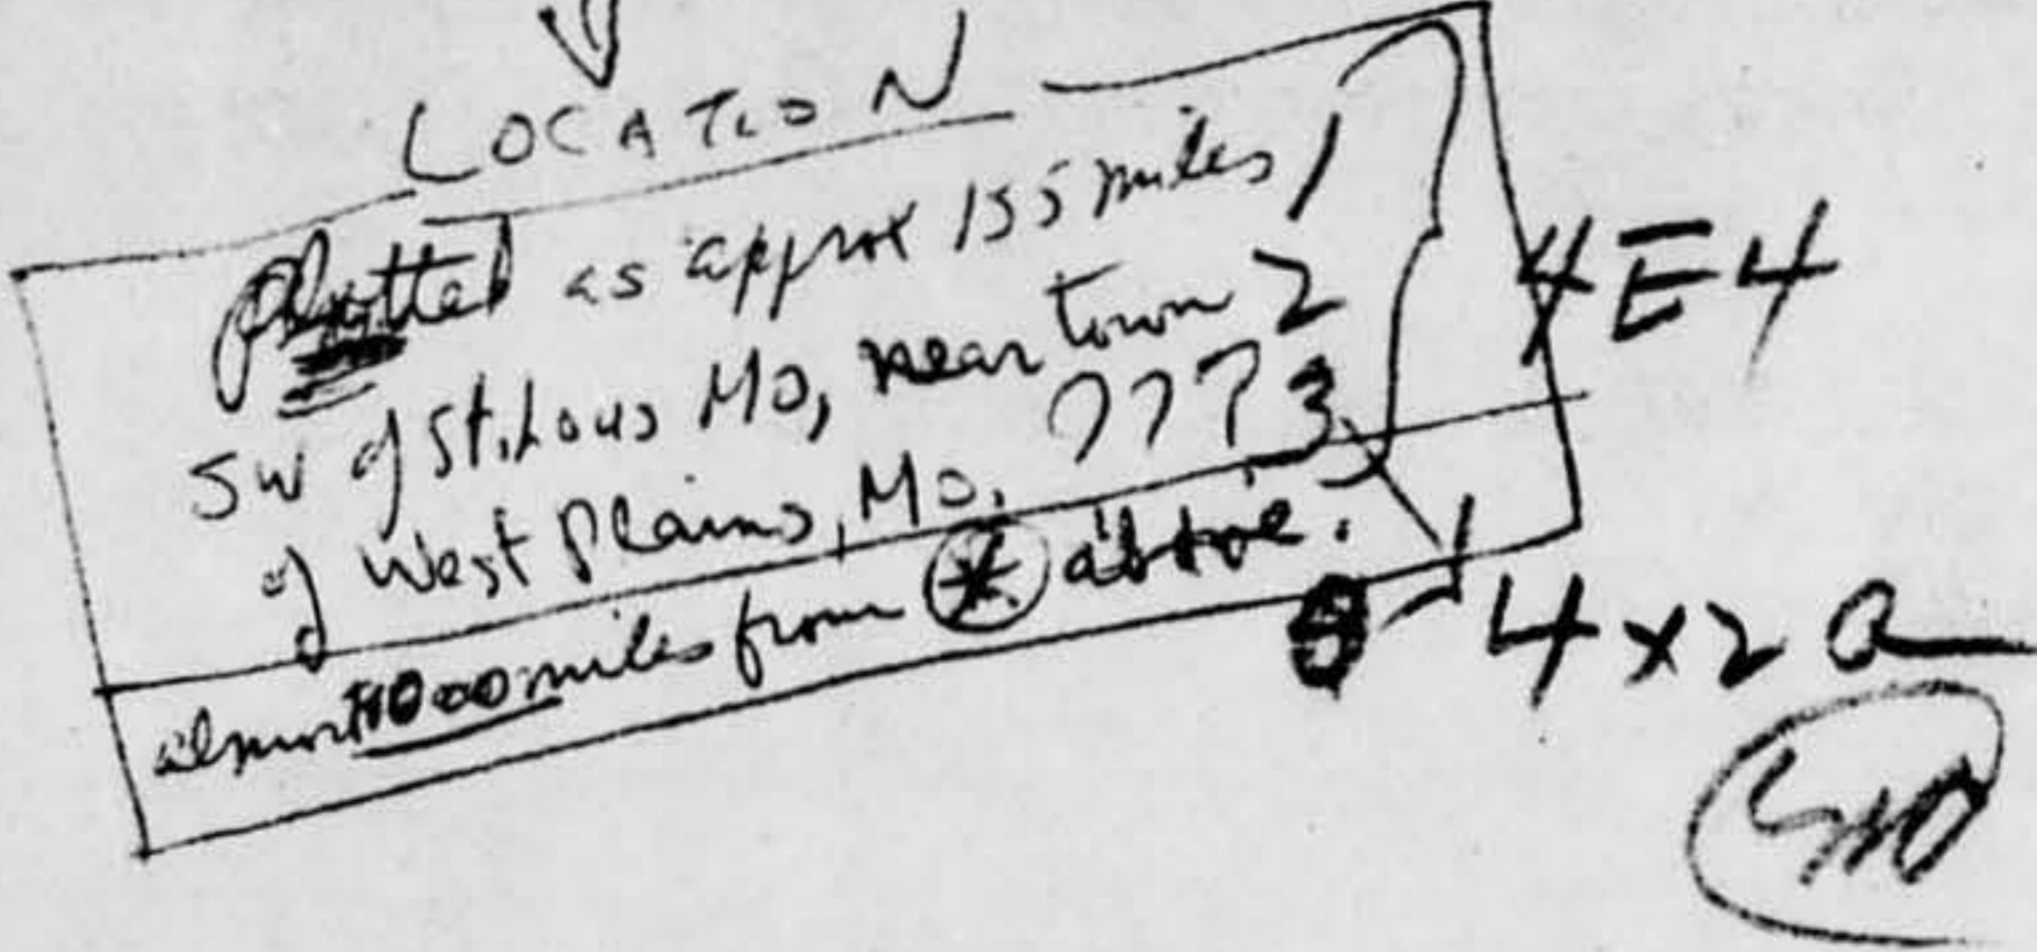 LOCATION
plotted as approx 155 miles 1
SW of St. Lous MO, near town 2
of West Plains, MO. ???? 3
almost 1000 miles from * above.
4E4
4x2a